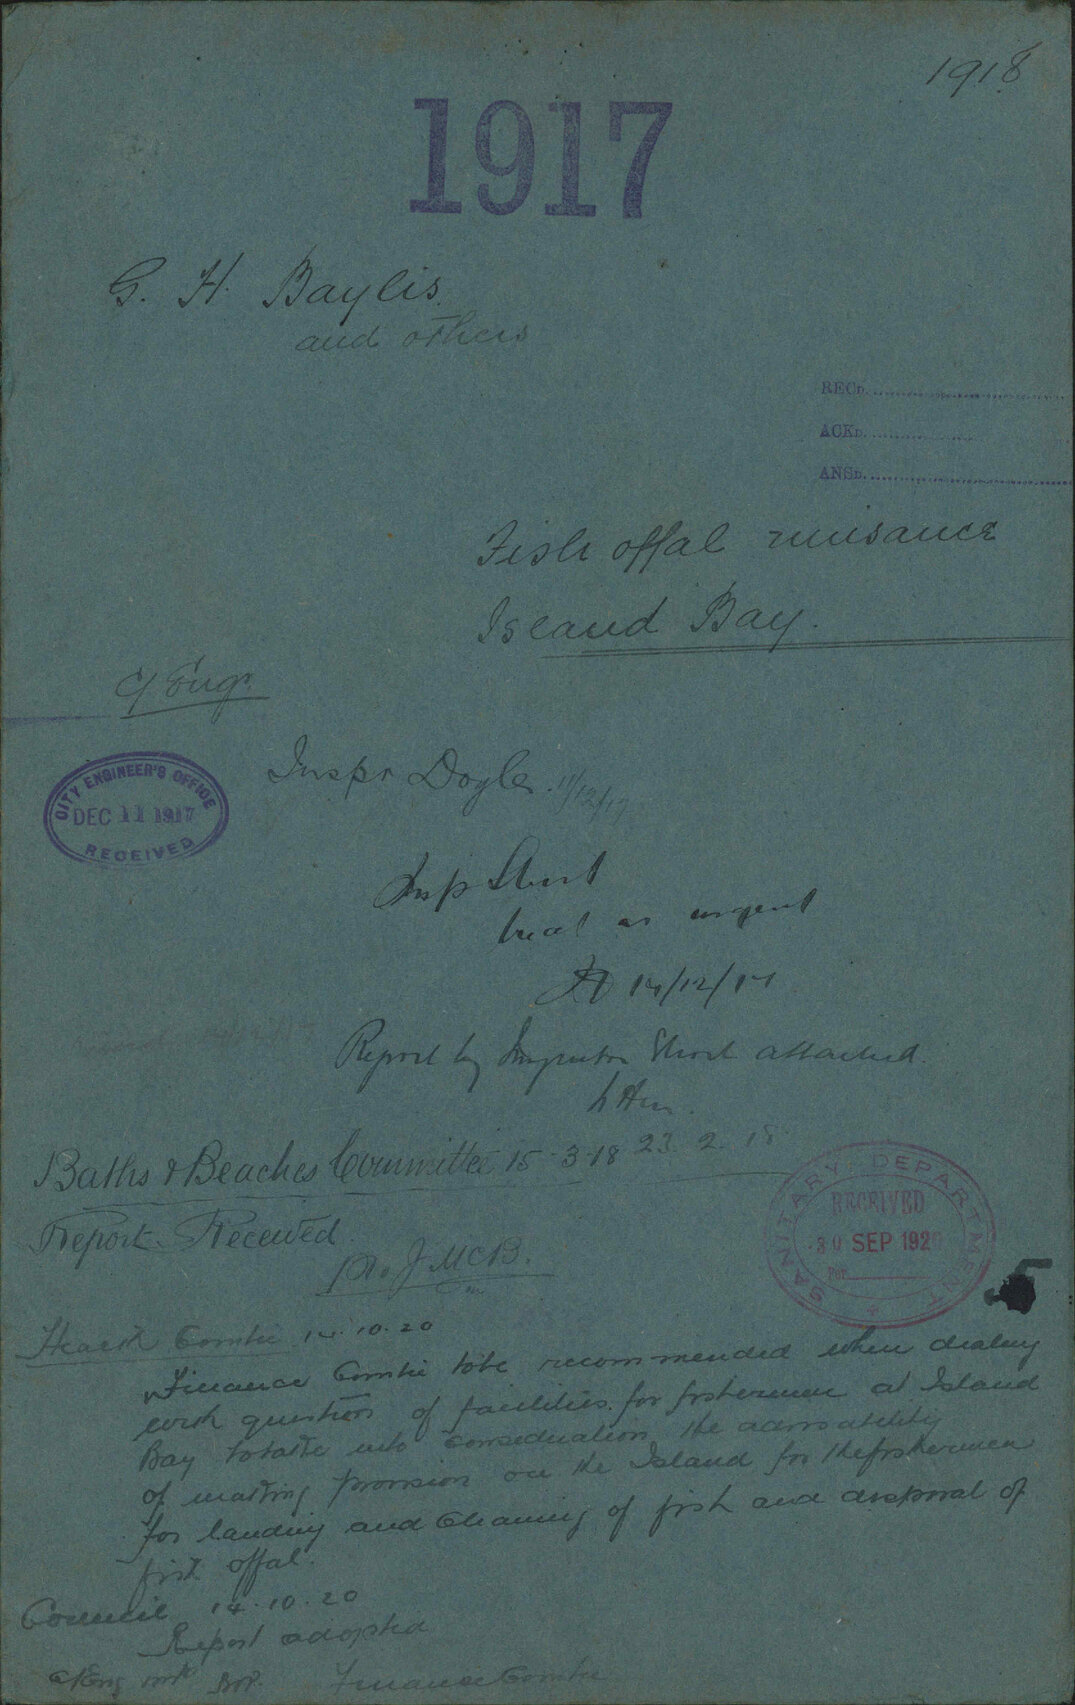 1918
1917
G. H. Baylis
and others
RECD.
ACKD.
ANSD.
Fish offal nuisance
Island Bay.
C/ Engr
CITY ENGINEER'S OFFICE
DEC 11 1917
RECEIVED
Inspr Doyle. 11/12/17
Insp Short
treat as urgent
14/12/17
Report by Inspector Short attached
23. 2. 18
Baths & Beaches Committee 15-3-18
Report Received
J McB.
SANITARY DEPARTMENT
RECEIVED
30 SEP 1920
Per
Health Comtee 14.10.20
Finance Comtee to be recommended when dealing
with question of facilities for fishermen at Island
Bay to take into consideration the advisability
of making provision on the Island for the fishermen
for landing and cleaning of fish and disposal of
fish offal.
Council 14.10.20
Report adopted
Finance Comtee